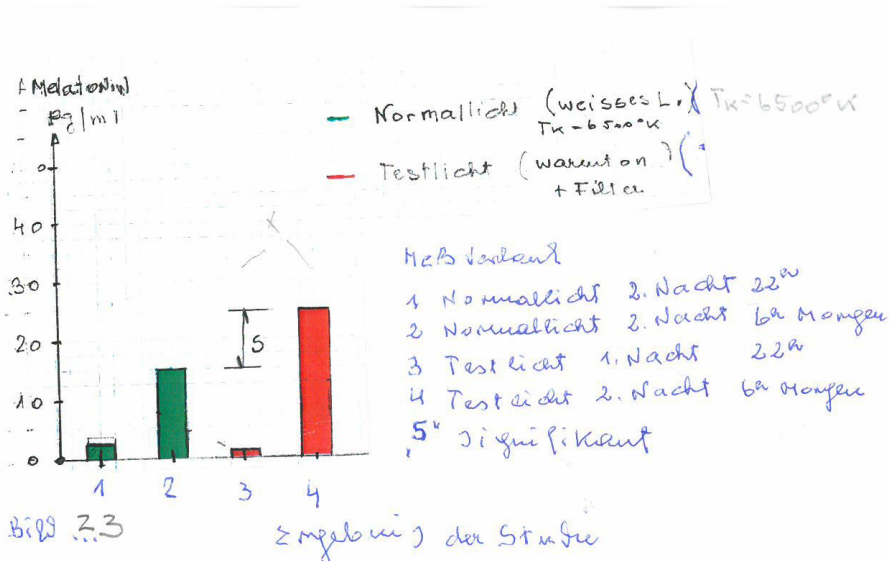 Melatonin
pg/ml
Normallicht (weisses L.) TK=6500°K
TK=6500°K
Testlicht (warmton) (
+ Filter
0
40
30
20
10
0
S
1 2 3 4
Meßverlauf
1 Normallicht 2. Nacht 22h
2 Normallicht 2. Nacht 6h Morgen
3 Testlicht 1. Nacht 22h
4 Testlicht 2. Nacht 6h Morgen
"S" Signifikant
Bild 23
Ergebnis der Studie